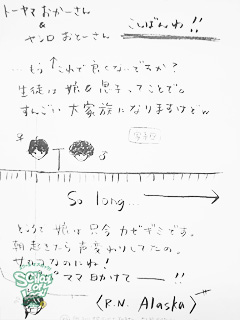 トーヤマおかーさん
&
ヤシロおとーさん
こんばんわ!!
…もうこれで良くないですか?
生徒は娘&息子ってことで。
すんごい大家族になりますけどw
So long...
ところで 娘は只今カゼギミです。
朝起きたら声変わりしてたの。
女の子なのにね!
ママ助けてーー!!
〈R.N. Alaska〉